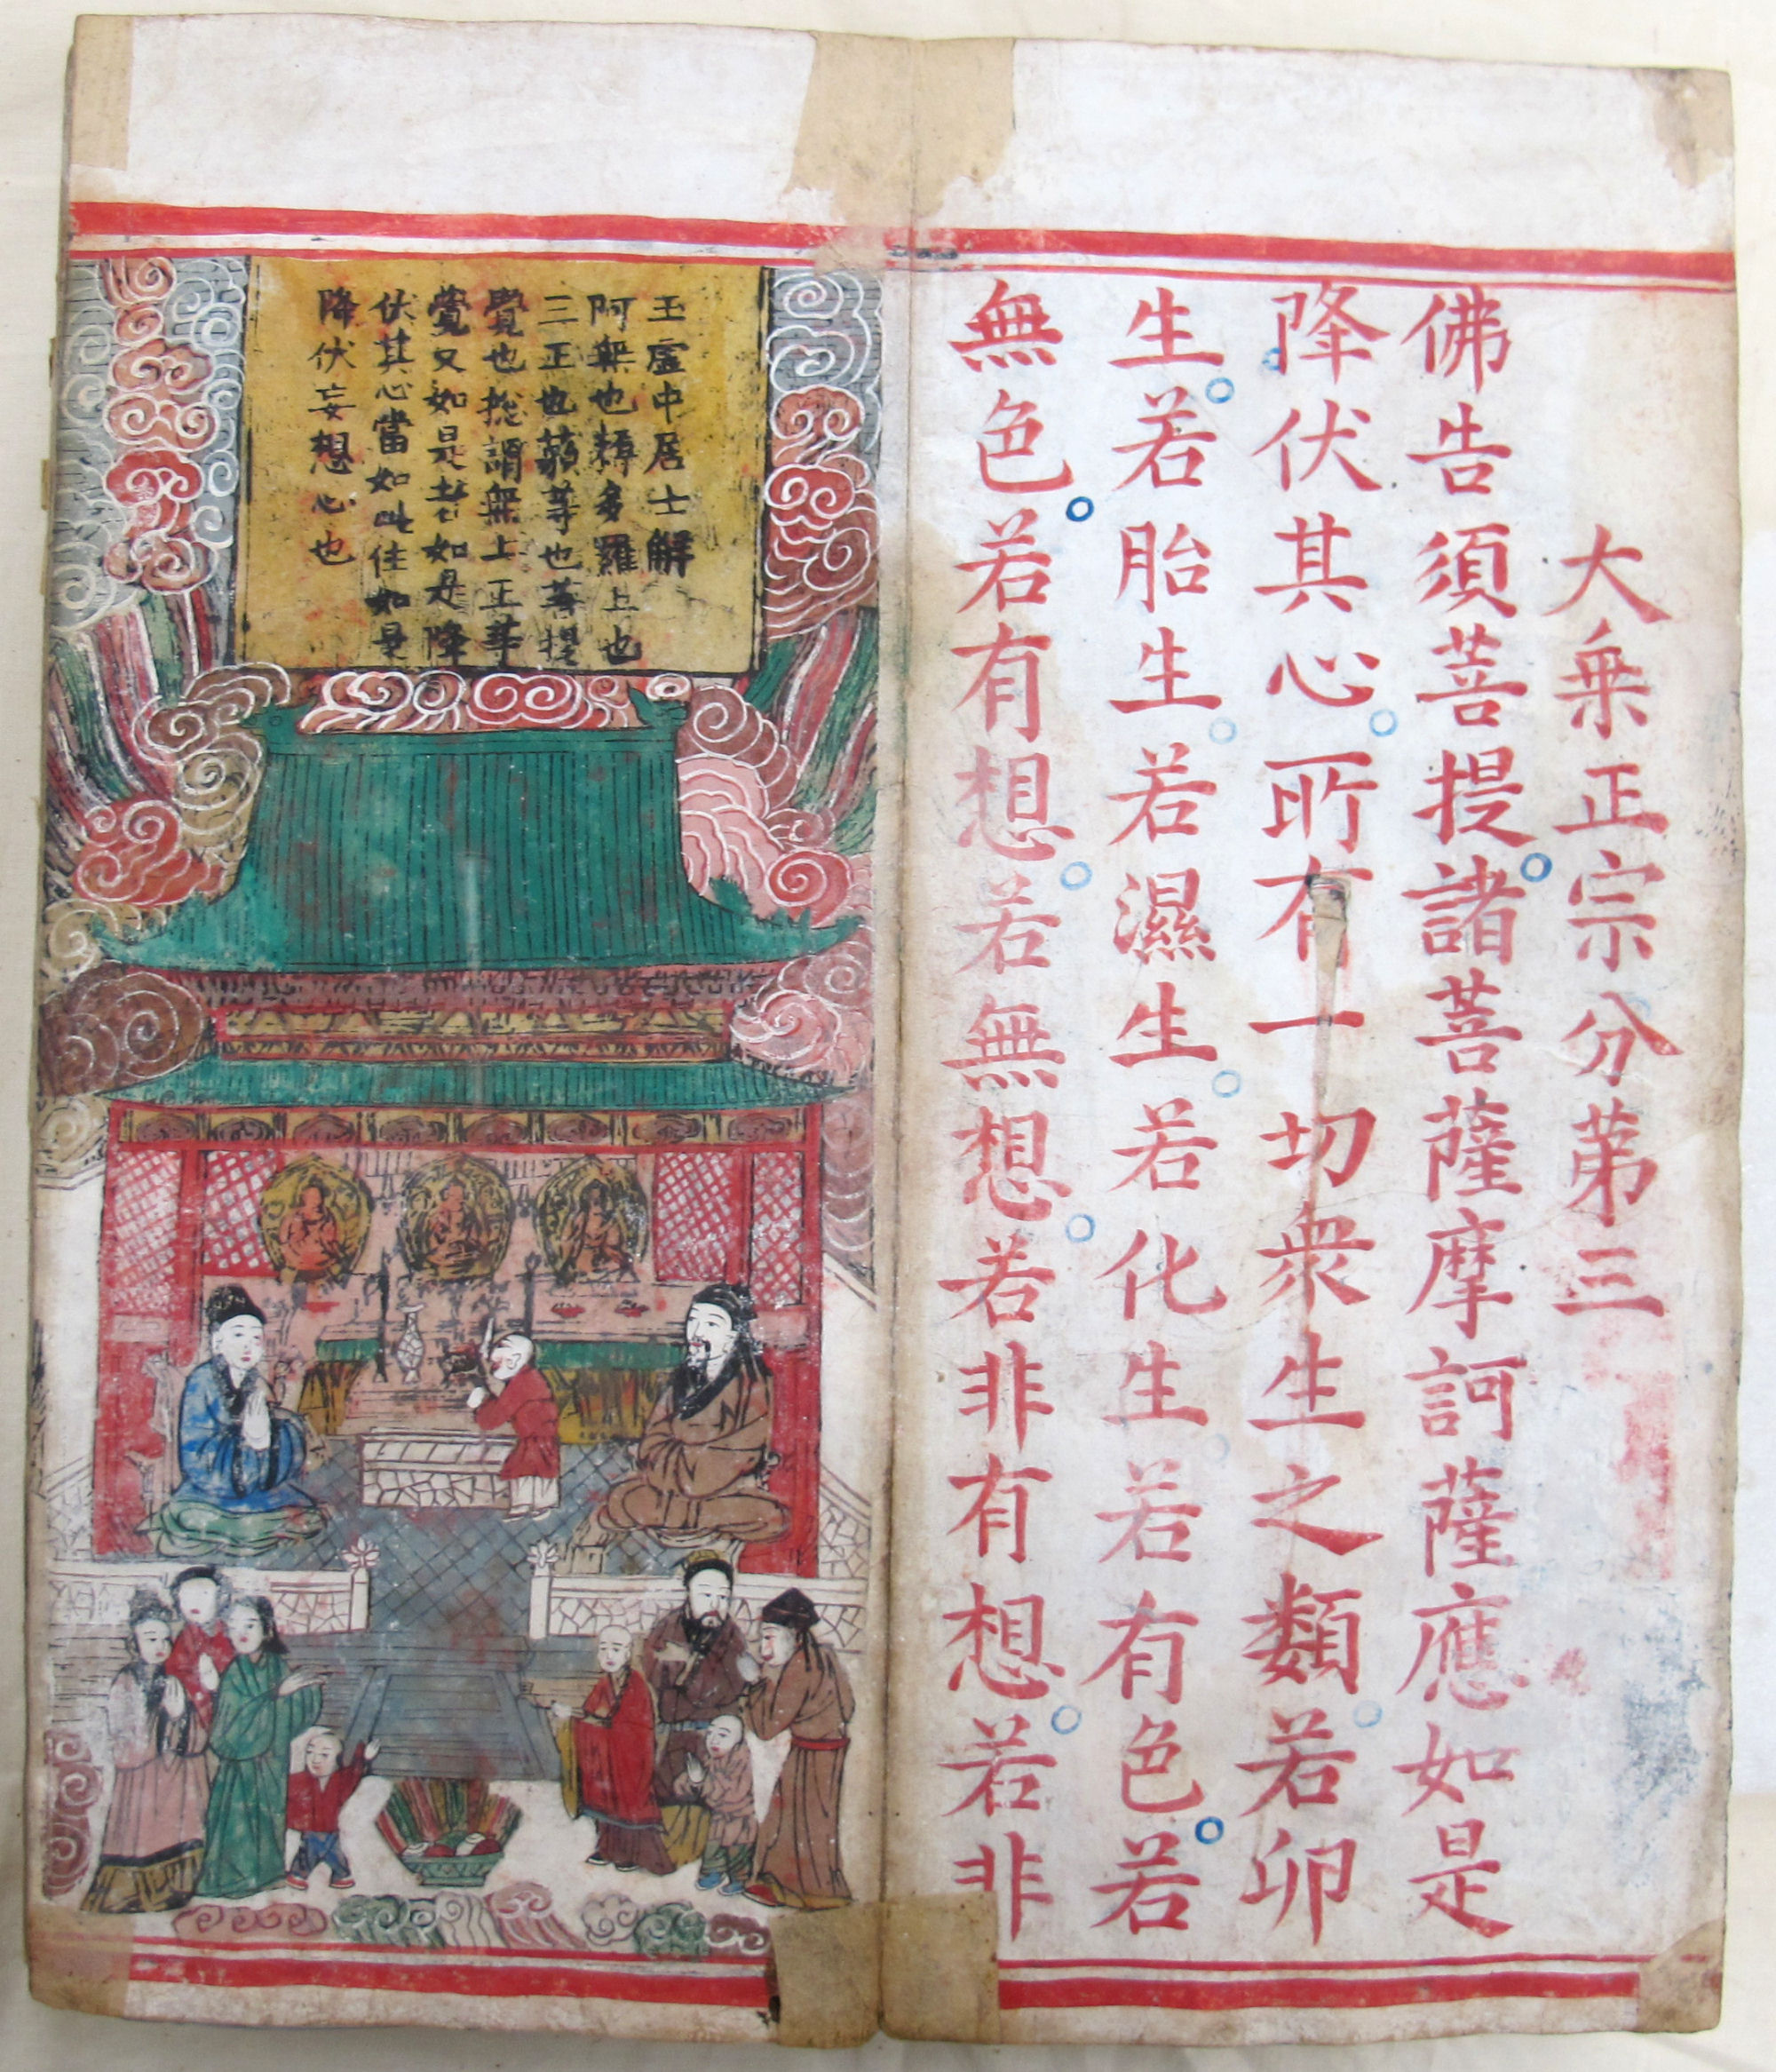 大乗正宗分苐三
佛告須菩提。諸菩薩摩訶薩應如是
降伏其心。所有一切衆生之類。若卵
生。若胎生。若濕生。若化生。若有色。若
無色。若有想。若無想。若非有想。若非
王虚中居士解
阿無也耨多羅上也
三正也藐等也菩提
覺也捴謂無上正等
覺又如是者如是降
伏其心當如此住如是
降伏妄想心也